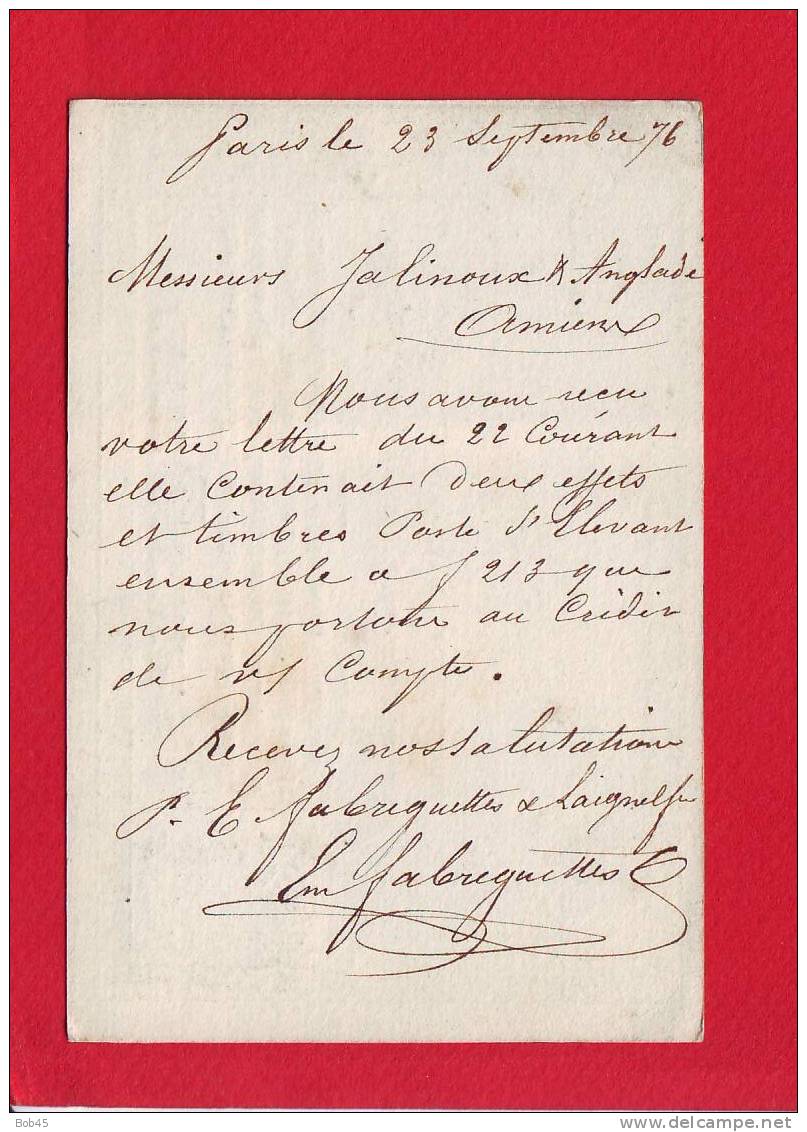 Paris le 23 Septembre 76
Messieurs Jalinoux & Anglade
Amiens
Nous avons reçu
votre lettre du 22 Courant
elle Contenait deux effets
et timbres Poste S'Elevant
ensemble a f 213 que
nous portons au Crédit
de v/ Compte.
Recevez nos Salutations
P. E fabreguettes & Laignel
Em fabreguettes
Bob45
www.delcampe.net